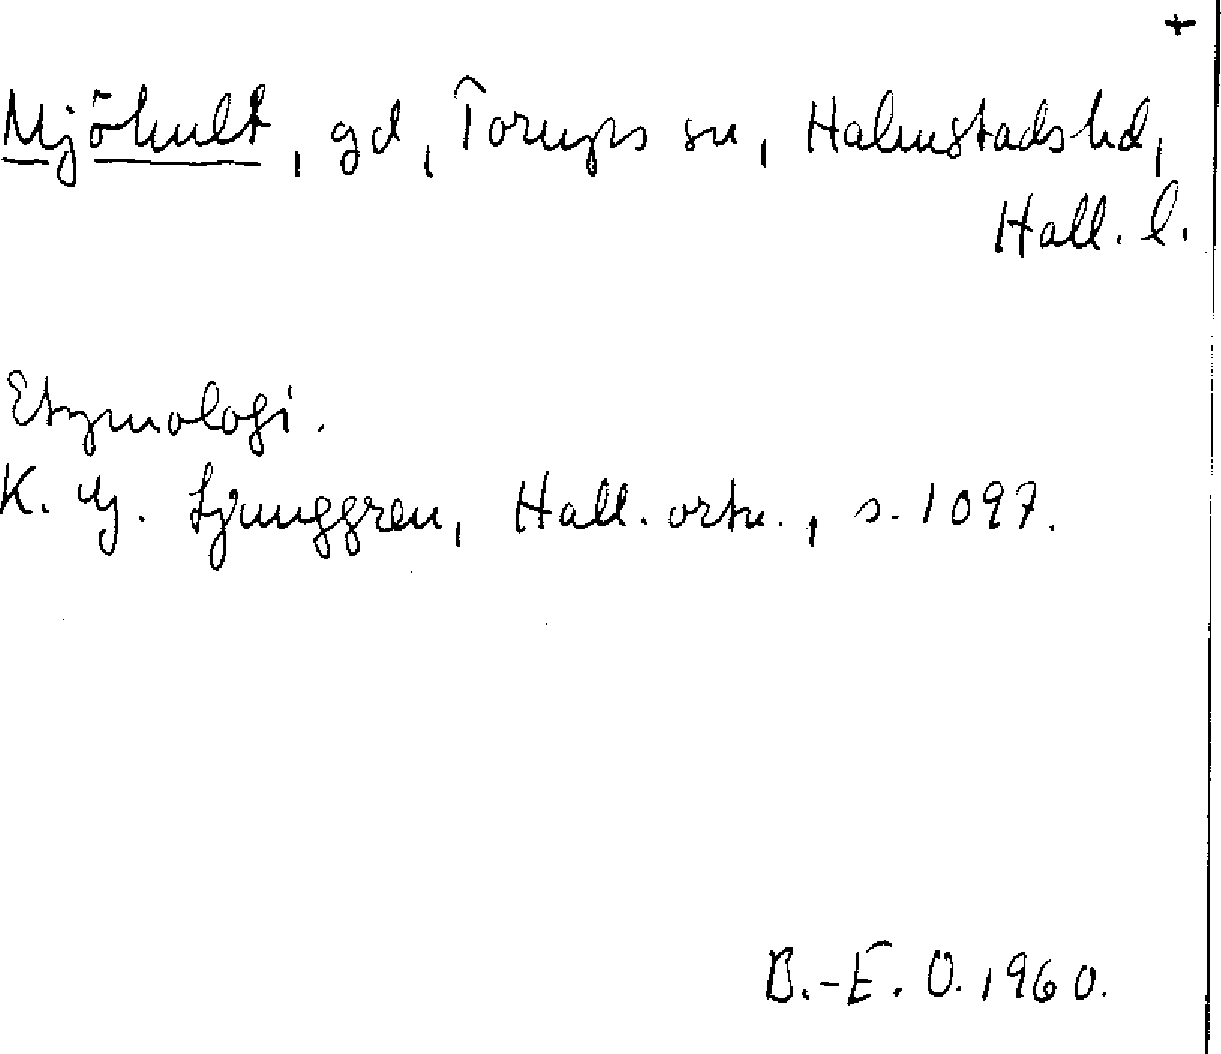 +
Mjöhult, gd, Torups sn, Halmstads hd,
Hall. l.
Etymologi.
K. G. Ljunggren, Hall. ortn., s. 1097.
B.-E. O. 1960.